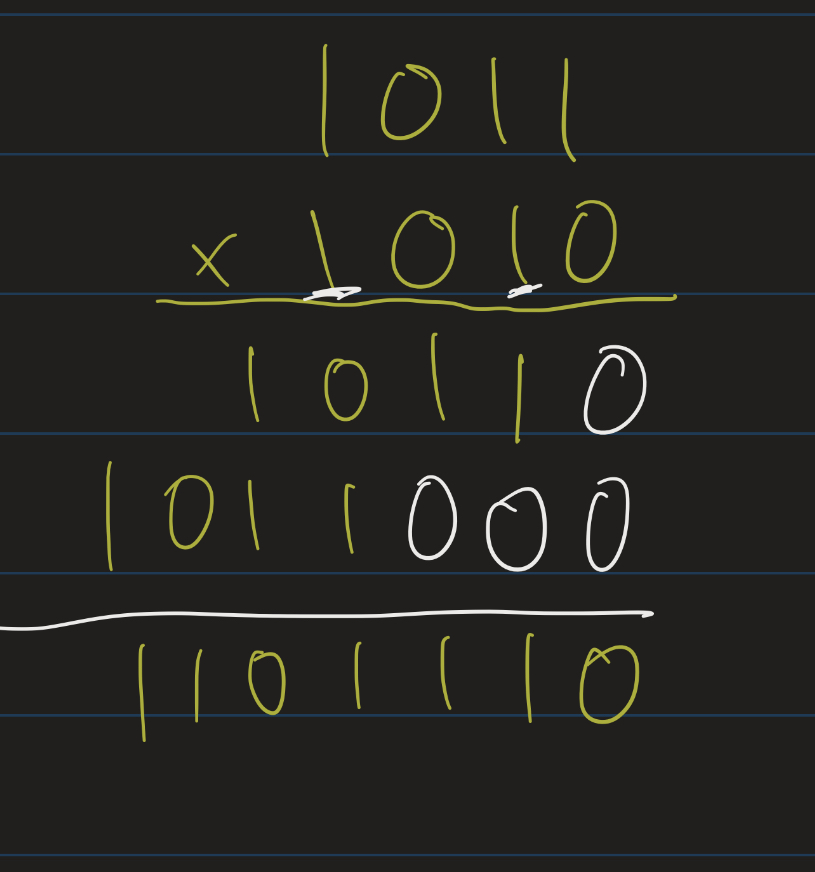 1011
x 1010
10110
1011000
1101110